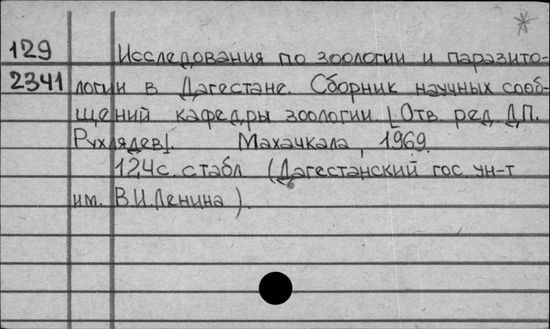 129 Исследования по зоологии и паразито-
2341 логии в Дагестане. Сборник научных сооб-
щений кафедры зоологии [Отв. ред. Д.П.
Рухлядев]. Махачкала, 1969.
124с. с табл (Дагестанский гос. ун-т
им. В.И.Ленина).